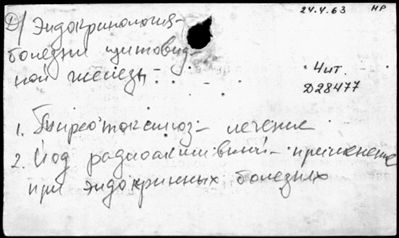 24.4.63 НР
Д/ Эндокринология-
болезни щитовид-
ной железы.
Чит.
D28477
1. Тиреотоксикоз - лечение
2. Иод радиоактивный - применение
при эндокринных болезнях